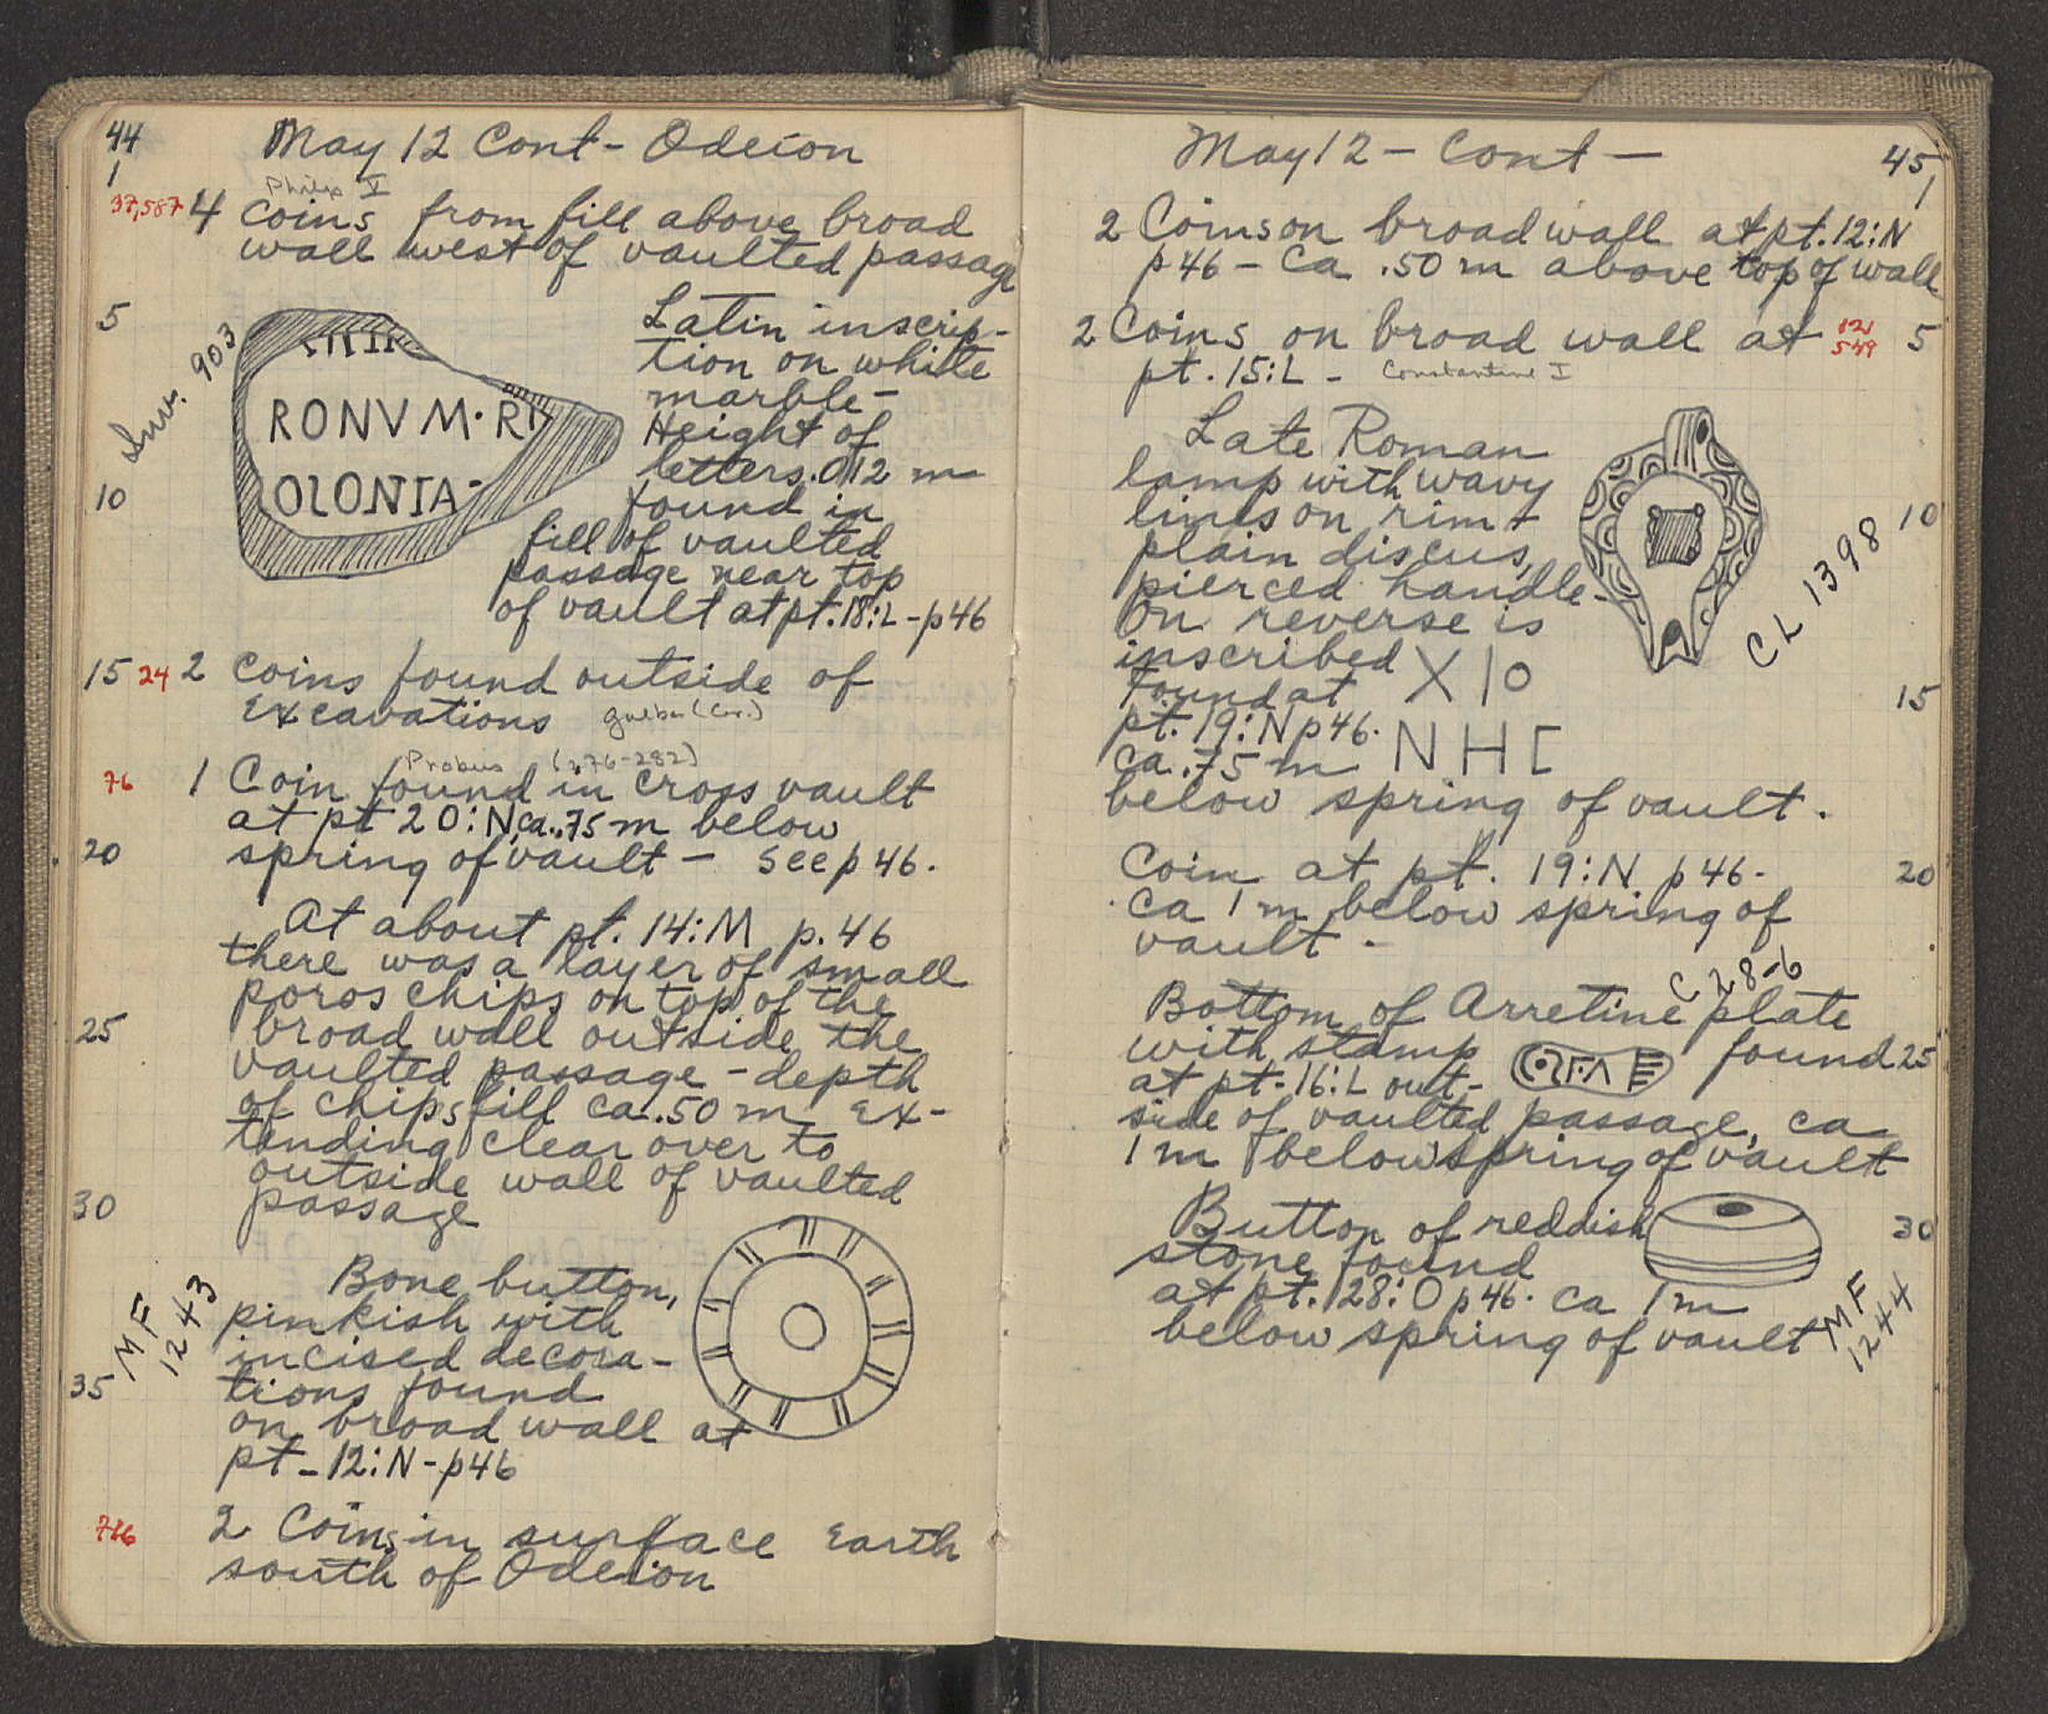 44
May 12 Cont - Odeion
1
Philip V
37,587 4 coins from fill above broad
wall west of vaulted passage
5
Inv. 903
RONVM·RI
OLONIA-
Latin inscrip-
tion on white
marble-
Height of
letters .012 m
10
found in
fill of vaulted
passage near top
of vault at pt. 18:L - p46
15 24 2 coins found outside of
Excavations
Probus (276-282)
76 1 Coin found in cross vault
at pt 20:N, ca. .75 m below
20 spring of vault - see p 46.
At about pt. 14:M p. 46
there was a layer of small
poros chips on top of the
25 broad wall outside the
vaulted passage - depth
of chips fill ca. .50 m Ex-
tending clear over to
outside wall of vaulted
30 passage
Bone button,
pinkish with
incised decora-
35 tions found
on broad wall at
pt - 12:N - p46
MF
1243
2 Coins in surface Earth
south of Odeion
May 12 - Cont -
45
1
2 Coins on broad wall at pt. 12:N
p46 - Ca .50 m above top of wall
2 Coins on broad wall at 5
pt. 15:L - Constantine I
Late Roman
lamp with wavy
lines on rim + 10
plain discus,
pierced handle -
On reverse is
inscribed X I O
found at 15
pt. 19:N p46. N H C
ca .75 m
below spring of vault.
CL 1398
Coin at pt. 19:N p46. 20
ca 1 m below spring of
vault -
C 28-6
Bottom of Arretine plate
with stamp found 25
at pt. 16:L out-
side of vaulted passage, ca
1 m below spring of vault
Button of reddish 30
stone found
at pt. 28:O p46. ca 1 m
below spring of vault
MF
1244